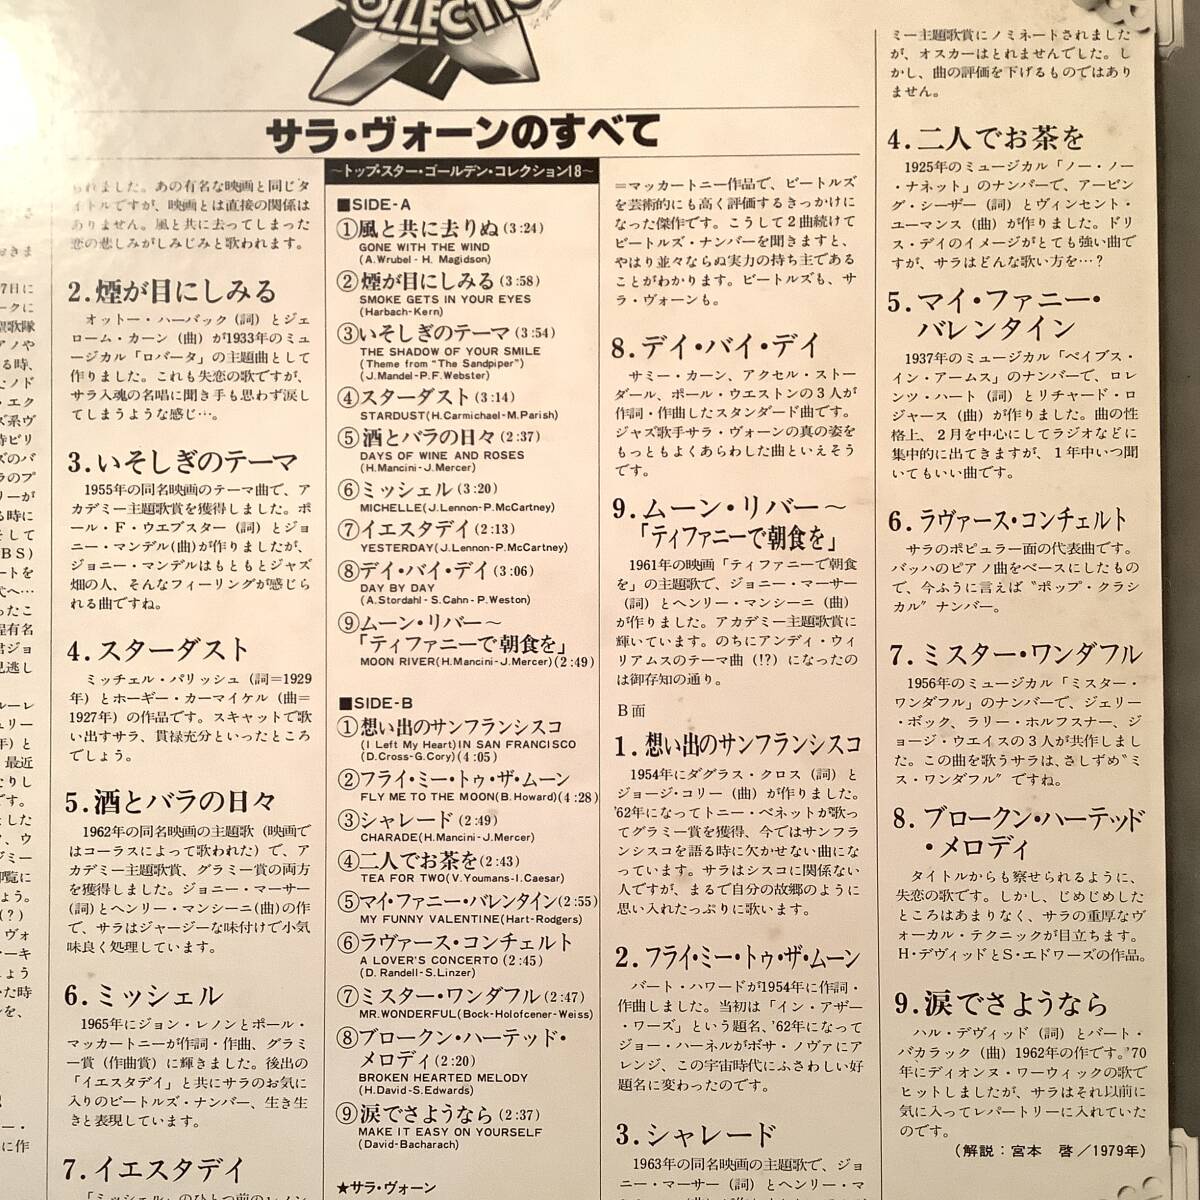 COLLECTIO
サラ・ヴォーンのすべて
られました。あの有名な映画と同じタ
イトルですが、映画とは直接の関係は
ありません。風と共に去ってしまった
恋の悲しみがしみじみと歌われます。
2.煙が目にしみる
オットー・ハーバック(詞)とジェ
ローム・カーン(曲)が1933年のミュ
ージカル「ロバータ」の主題曲として
作りました。これも失恋の歌ですが、
サラ入魂の名唱に聞き手も思わず涙し
てしまうような感じ…。
3.いそしぎのテーマ
1955年の同名映画のテーマ曲で、ア
カデミー主題歌賞を獲得しました。ポ
ール・F・ウエブスター(詞)とジョ
ニー・マンデル(曲)が作りましたが、
ジョニー・マンデルはもともとジャズ
畑の人、そんなフィーリングが感じら
れる曲ですね。
4.スターダスト
ミッチェル・パリッシュ(詞=1929
年)とホーギー・カーマイケル(曲=
1927年)の作品です。スキャットで歌
い出すサラ、貫禄充分といったところ
でしょう。
5.酒とバラの日々
1962年の同名映画の主題歌(映画で
はコーラスによって歌われた)で、ア
カデミー主題歌賞、グラミー賞の両方
を獲得しました。ジョニー・マーサー
(詞)とヘンリー・マンシーニ(曲)の作
で、サラはジャージーな味付けで小気
味良く処理しています。
6.ミッシェル
1965年にジョン・レノンとポール・
マッカートニーが作詞・作曲、グラミ
ー賞(作曲賞)に輝きました。後出の
「イエスタデイ」と共にサラのお気に
入りのビートルズ・ナンバー、生き生
きと表現しています。
7.イエスタデイ
「ミッシェル」のひとつ前のレノン
〜トップ・スター・ゴールデン・コレクション18〜
■SIDE-A
①風と共に去りぬ(3:24)
GONE WITH THE WIND
(A.Wrubel-H.Magidson)
②煙が目にしみる(3:58)
SMOKE GETS IN YOUR EYES
(Harbach-Kern)
③いそしぎのテーマ(3:54)
THE SHADOW OF YOUR SMILE
(Theme from "The Sandpiper")
(J.Mandel-P.F.Webster)
④スターダスト(3:14)
STARDUST(H.Carmichael-M.Parish)
⑤酒とバラの日々(2:37)
DAYS OF WINE AND ROSES
(H.Mancini-J.Mercer)
⑥ミッシェル(3:20)
MICHELLE(J.Lennon-P.McCartney)
⑦イエスタデイ(2:13)
YESTERDAY(J.Lennon-P.McCartney)
⑧デイ・バイ・デイ(3:06)
DAY BY DAY
(A.Stordahl-S.Cahn-P.Weston)
⑨ムーン・リバー〜
「ティファニーで朝食を」
MOON RIVER(H.Mancini-J.Mercer)(2:49)
■SIDE-B
①想い出のサンフランシスコ
(I Left My Heart)IN SAN FRANCISCO
(D.Cross-G.Cory)(4:05)
②フライ・ミー・トゥ・ザ・ムーン
FLY ME TO THE MOON(B.Howard)(4:28)
③シャレード(2:49)
CHARADE(H.Mancini-J.Mercer)
④二人でお茶を(2:43)
TEA FOR TWO(V.Youmans-I.Caesar)
⑤マイ・ファニー・バレンタイン(2:55)
MY FUNNY VALENTINE(Hart-Rodgers)
⑥ラヴァース・コンチェルト
A LOVER'S CONCERTO(2:45)
(D.Randell-S.Linzer)
⑦ミスター・ワンダフル(2:47)
MR.WONDERFUL(Bock-Holofcener-Weiss)
⑧ブロークン・ハーテッド・
メロディ(2:20)
BROKEN HEARTED MELODY
(H.David-S.Edwards)
⑨涙でさようなら(2:37)
MAKE IT EASY ON YOURSELF
(David-Bacharach)
★サラ・ヴォーン
=マッカートニー作品で、ビートルズ
を芸術的にも高く評価するきっかけに
なった傑作です。こうして2曲続けて
ビートルズ・ナンバーを聞きますと、
やはり並々ならぬ実力の持ち主である
ことがわかります。ビートルズも、サ
ラ・ヴォーンも。
8.デイ・バイ・デイ
サミー・カーン、アクセル・ストー
ダール、ポール・ウエストンの3人が
作詞・作曲したスタンダード曲です。
ジャズ歌手サラ・ヴォーンの真の姿を
もっともよくあらわした曲といえそう
です。
9.ムーン・リバー〜
「ティファニーで朝食を」
1961年の映画「ティファニーで朝食
を」の主題歌で、ジョニー・マーサー
(詞)とヘンリー・マンシーニ(曲)
が作りました。アカデミー主題歌賞に
輝いています。のちにアンディ・ウィ
リアムスのテーマ曲(!?)になったの
は御存知の通り。
B面
1.想い出のサンフランシスコ
1954年にダグラス・クロス(詞)と
ジョージ・コリー(曲)が作りました。
'62年になってトニー・ベネットが歌っ
てグラミー賞を獲得、今ではサンフラ
ンシスコを語る時に欠かせない曲にな
っています。サラはシスコに関係ない
人ですが、まるで自分の故郷のように
思い入れたっぷりに歌います。
2.フライ・ミー・トゥ・ザ・ムーン
バート・ハワードが1954年に作詞・
作曲しました。当初は「イン・アザー
・ワーズ」という題名、'62年になって
ジョー・ハーネルがボサ・ノヴァにア
レンジ、この宇宙時代にふさわしい好
題名に変わったのです。
3.シャレード
1963年の同名映画の主題歌で、ジョ
ニー・マーサー(詞)とヘンリー・マ
ミー主題歌賞にノミネートされました
が、オスカーはとれませんでした。し
かし、曲の評価を下げるものではあり
ません。
4.二人でお茶を
1925年のミュージカル「ノー・ノー
・ナネット」のナンバーで、アービン
グ・シーザー(詞)とヴィンセント・
ユーマンス(曲)が作りました。ドリ
ス・デイのイメージがとても強い曲で
すが、サラはどんな歌い方を…?
5.マイ・ファニー・
バレンタイン
1937年のミュージカル「ベイブス・
イン・アームス」のナンバーで、ロレ
ンツ・ハート(詞)とリチャード・ロ
ジャース(曲)が作りました。曲の性
格上、2月を中心にしてラジオなどに
集中的に出てきますが、1年中いつ聞
いてもいい曲です。
6.ラヴァース・コンチェルト
サラのポピュラー面の代表曲です。
バッハのピアノ曲をベースにしたもの
で、今ふうに言えば"ポップ・クラシ
カル"ナンバー。
7.ミスター・ワンダフル
1956年のミュージカル「ミスター・
ワンダフル」のナンバーで、ジェリー
・ボック、ラリー・ホルフスナー、ジ
ョージ・ウエイスの3人が共作しまし
た。この曲を歌うサラは、さしずめ"ミ
ス・ワンダフル"ですね。
8.ブロークン・ハーテッド
・メロディ
タイトルからも察せられるように、
失恋の歌です。しかし、じめじめした
ところはあまりなく、サラの重厚なヴ
ォーカル・テクニックが目立ちます。
H・デヴィッドとS・エドワーズの作品。
9.涙でさようなら
ハル・デヴィッド(詞)とバート・
バカラック(曲)1962年の作です。'70
年にディオンヌ・ワーウィックの歌で
ヒットしましたが、サラはそれ以前に
気に入ってレパートリーに入れていた
のです。
(解説:宮本 啓/1979年)